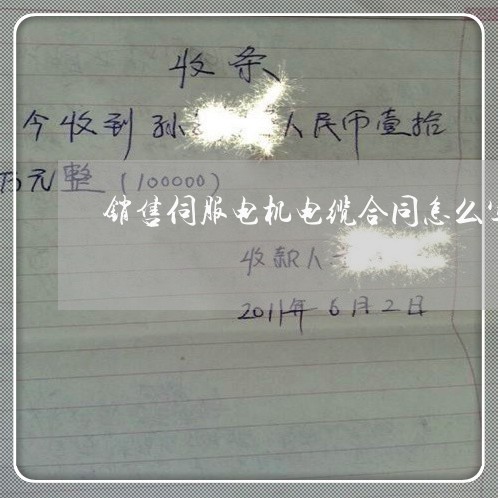 收条
今收到孙 人民币壹拾
万元整(100000)
销售伺服电机电缆合同怎么
收款人
2011年6月2日